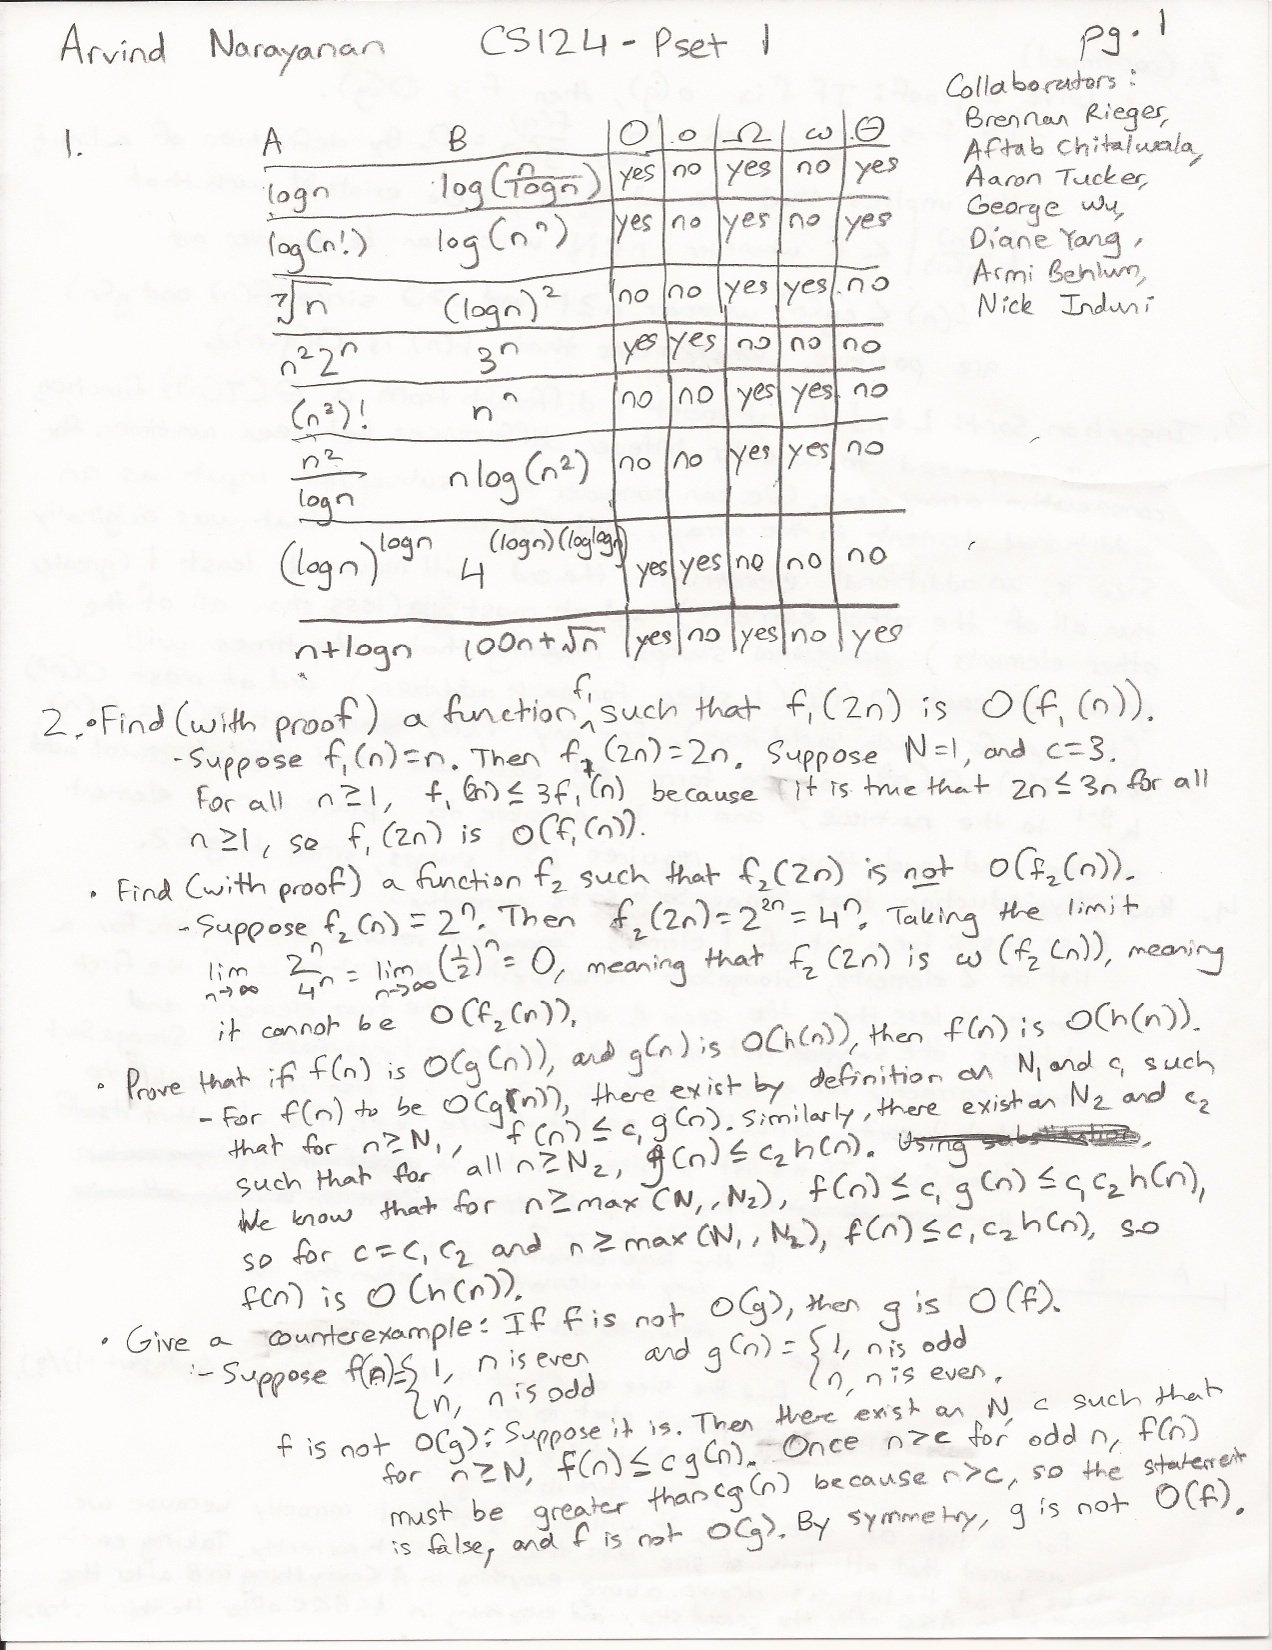 Arvind Narayanan CS124 - Pset 1 pg. 1
Collaborators:
Brennan Rieger,
Aftab Chitalwala,
Aaron Tucker,
George Wu,
Diane Yang,
Armi Behlum,
Nick Induni
1. A B O o Ω ω Θ
log n log(n/log n) yes no yes no yes
log(n!) log(n^n) yes no yes no yes
⁷√n (log n)^2 no no yes yes no
n^2 2^n 3^n yes yes no no no
(n^2)! n^n no no yes yes no
n^2/log n n log(n^2) no no yes yes no
(log n)^log n 4^(log n)(log log n) yes yes no no no
n+log n 100n+√n yes no yes no yes
2. • Find (with proof) a function f₁ such that f₁(2n) is O(f₁(n)).
- Suppose f₁(n)=n. Then f₁(2n)=2n. Suppose N=1, and c=3.
For all n≥1, f₁(2n) ≤ 3f₁(n) because it is true that 2n ≤ 3n for all
n≥1, so f₁(2n) is O(f₁(n)).
• Find (with proof) a function f₂ such that f₂(2n) is not O(f₂(n)).
- Suppose f₂(n) = 2^n. Then f₂(2n) = 2^2n = 4^n. Taking the limit
lim n→∞ 2^n/4^n = lim n→∞ (1/2)^n = 0, meaning that f₂(2n) is ω(f₂(n)), meaning
it cannot be O(f₂(n)).
• Prove that if f(n) is O(g(n)), and g(n) is O(h(n)), then f(n) is O(h(n)).
- For f(n) to be O(g(n)), there exist by definition an N₁ and c₁ such
that for n≥N₁, f(n) ≤ c₁g(n). Similarly, there exist an N₂ and c₂
such that for all n≥N₂, g(n) ≤ c₂h(n).
We know that for n≥max(N₁, N₂), f(n) ≤ c₁g(n) ≤ c₁c₂h(n),
so for c=c₁c₂ and n≥max(N₁, N₂), f(n) ≤ c₁c₂h(n), so
f(n) is O(h(n)).
• Give a counterexample: If f is not O(g), then g is O(f).
- Suppose f(n)={1, n is even and g(n)={1, n is odd
{n, n is odd {n, n is even.
f is not O(g): Suppose it is. Then there exist an N, c such that
for n≥N, f(n) ≤ cg(n). Once n>c for odd n, f(n)
must be greater than cg(n) because n>c, so the statement
is false, and f is not O(g). By symmetry, g is not O(f).